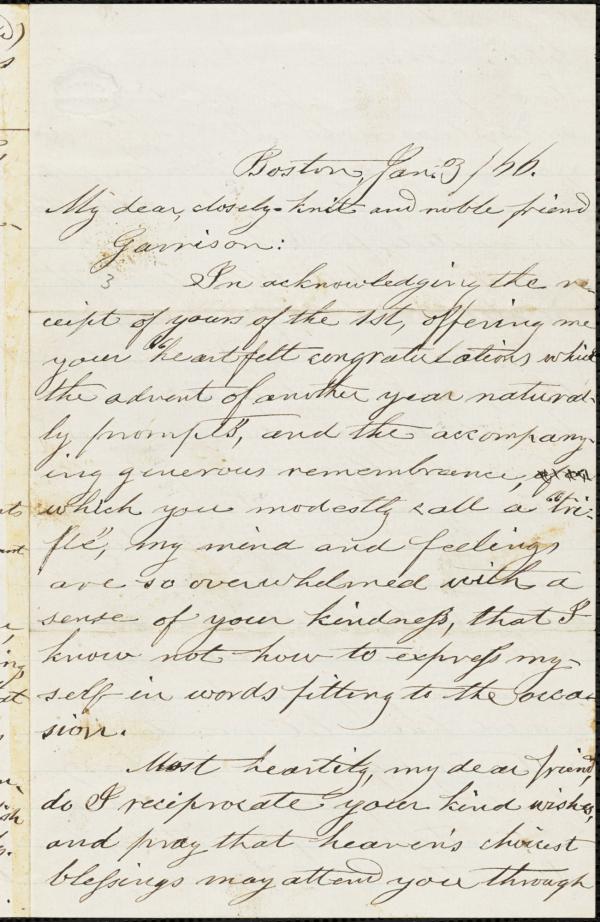 Boston, Jan. 3/66.
My dear, closely-knit and noble friend
Garrison:
3
In acknowledging the re-
ceipt of yours of the 1st, offering me
your "heartfelt congratulations which
the advent of another year natural-
ly prompts", and the accompany-
ing generous remembrance,
which you modestly call a "tri-
fle", my mind and feelings
are so overwhelmed with a
sense of your kindness, that I
know not how to express my-
self in words fitting to the occa-
sion.
Most heartily, my dear friend,
do I reciprocate your kind wishes,
and pray that heaven's choicest
blessings may attend you through